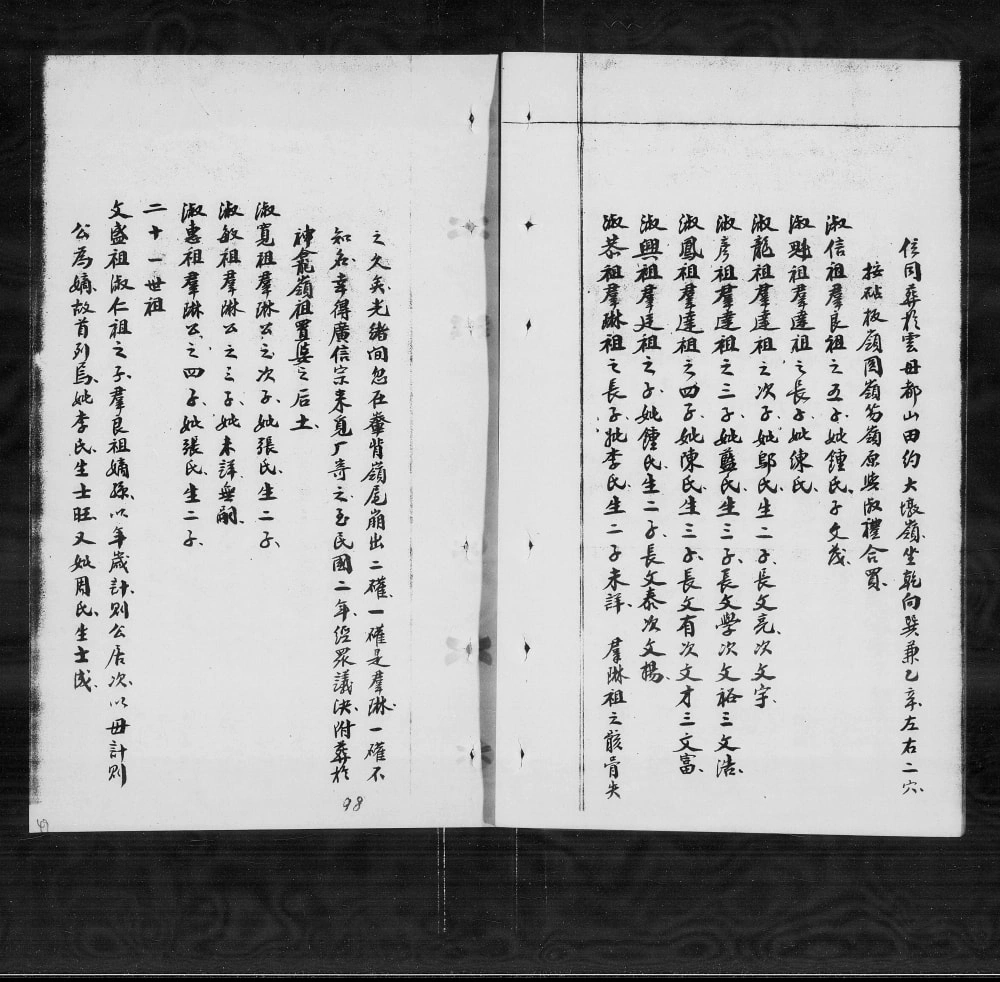 信同葬於雲母都山田約大塘嶺坐乾向巽兼乙辛左右二穴
按砧板嶺園嶺笏嶺原與淑禮合買
淑信祖羣良祖之五子妣鍾氏子文茂
淑魁祖羣達祖之長子妣陳氏
淑龍祖羣達祖之次子妣鄔氏生二子長文亮次文宇
淑彥祖羣達祖之三子妣藍氏生三子長文學次文裕三文浩
淑鳳祖羣達祖之四子妣陳氏生三子長文有次文才三文富
淑興祖羣廷祖之子妣鍾氏生二子長文泰次文楊
淑恭祖羣琳祖之長子妣李氏生二子未詳 羣琳祖之骸骨失
之久矣光緒間忽在壟背嶺尾崩出二確一確是羣琳一確不
知名幸得廣信宗來覓厂寄之至民國二年經眾議決附葬於
神龕嶺祖置塋之后土
淑寬祖羣琳公之次子妣張氏生二子
淑敏祖羣琳公之三子妣未詳無嗣
淑惠祖羣琳公之四子妣張氏生二子
二十一世祖
文盛祖淑仁祖之子羣良祖嫡孫以年歲計則公居次以母計則
公為嫡故首列焉妣李氏生士旺又妣周氏生士成
98
49